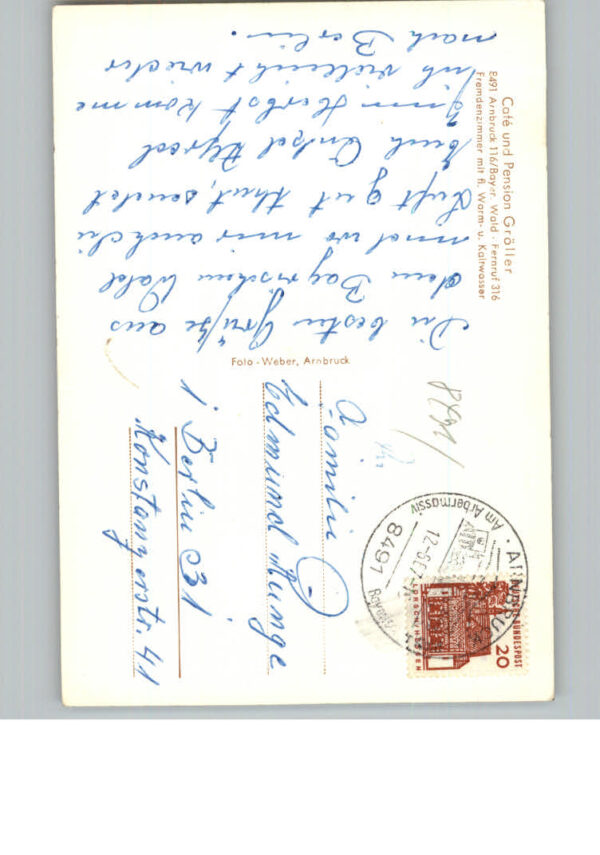 Café und Pension Gröller
8491 Arnbruck 116/Bayer. Wald · Fernruf 316
Fremdenzimmer mit fl. Warm- u. Kaltwasser
Die besten Grüße aus
dem Bayrischen Wald
und wo mir auch die
Luft gut thut, sendet
Euch Onkel Alfred
Im Herbst komme
ich vieleicht wieder
nach Berlin.
Foto - Weber, Arnbruck
8491
Familie
Edmund Runge
1 Berlin 31
Konstanzerstr. 41
ARNBRUCK
Am Arbermassiv
8491
DEUTSCHE BUNDESPOST
20
LORSCH/HESSEN